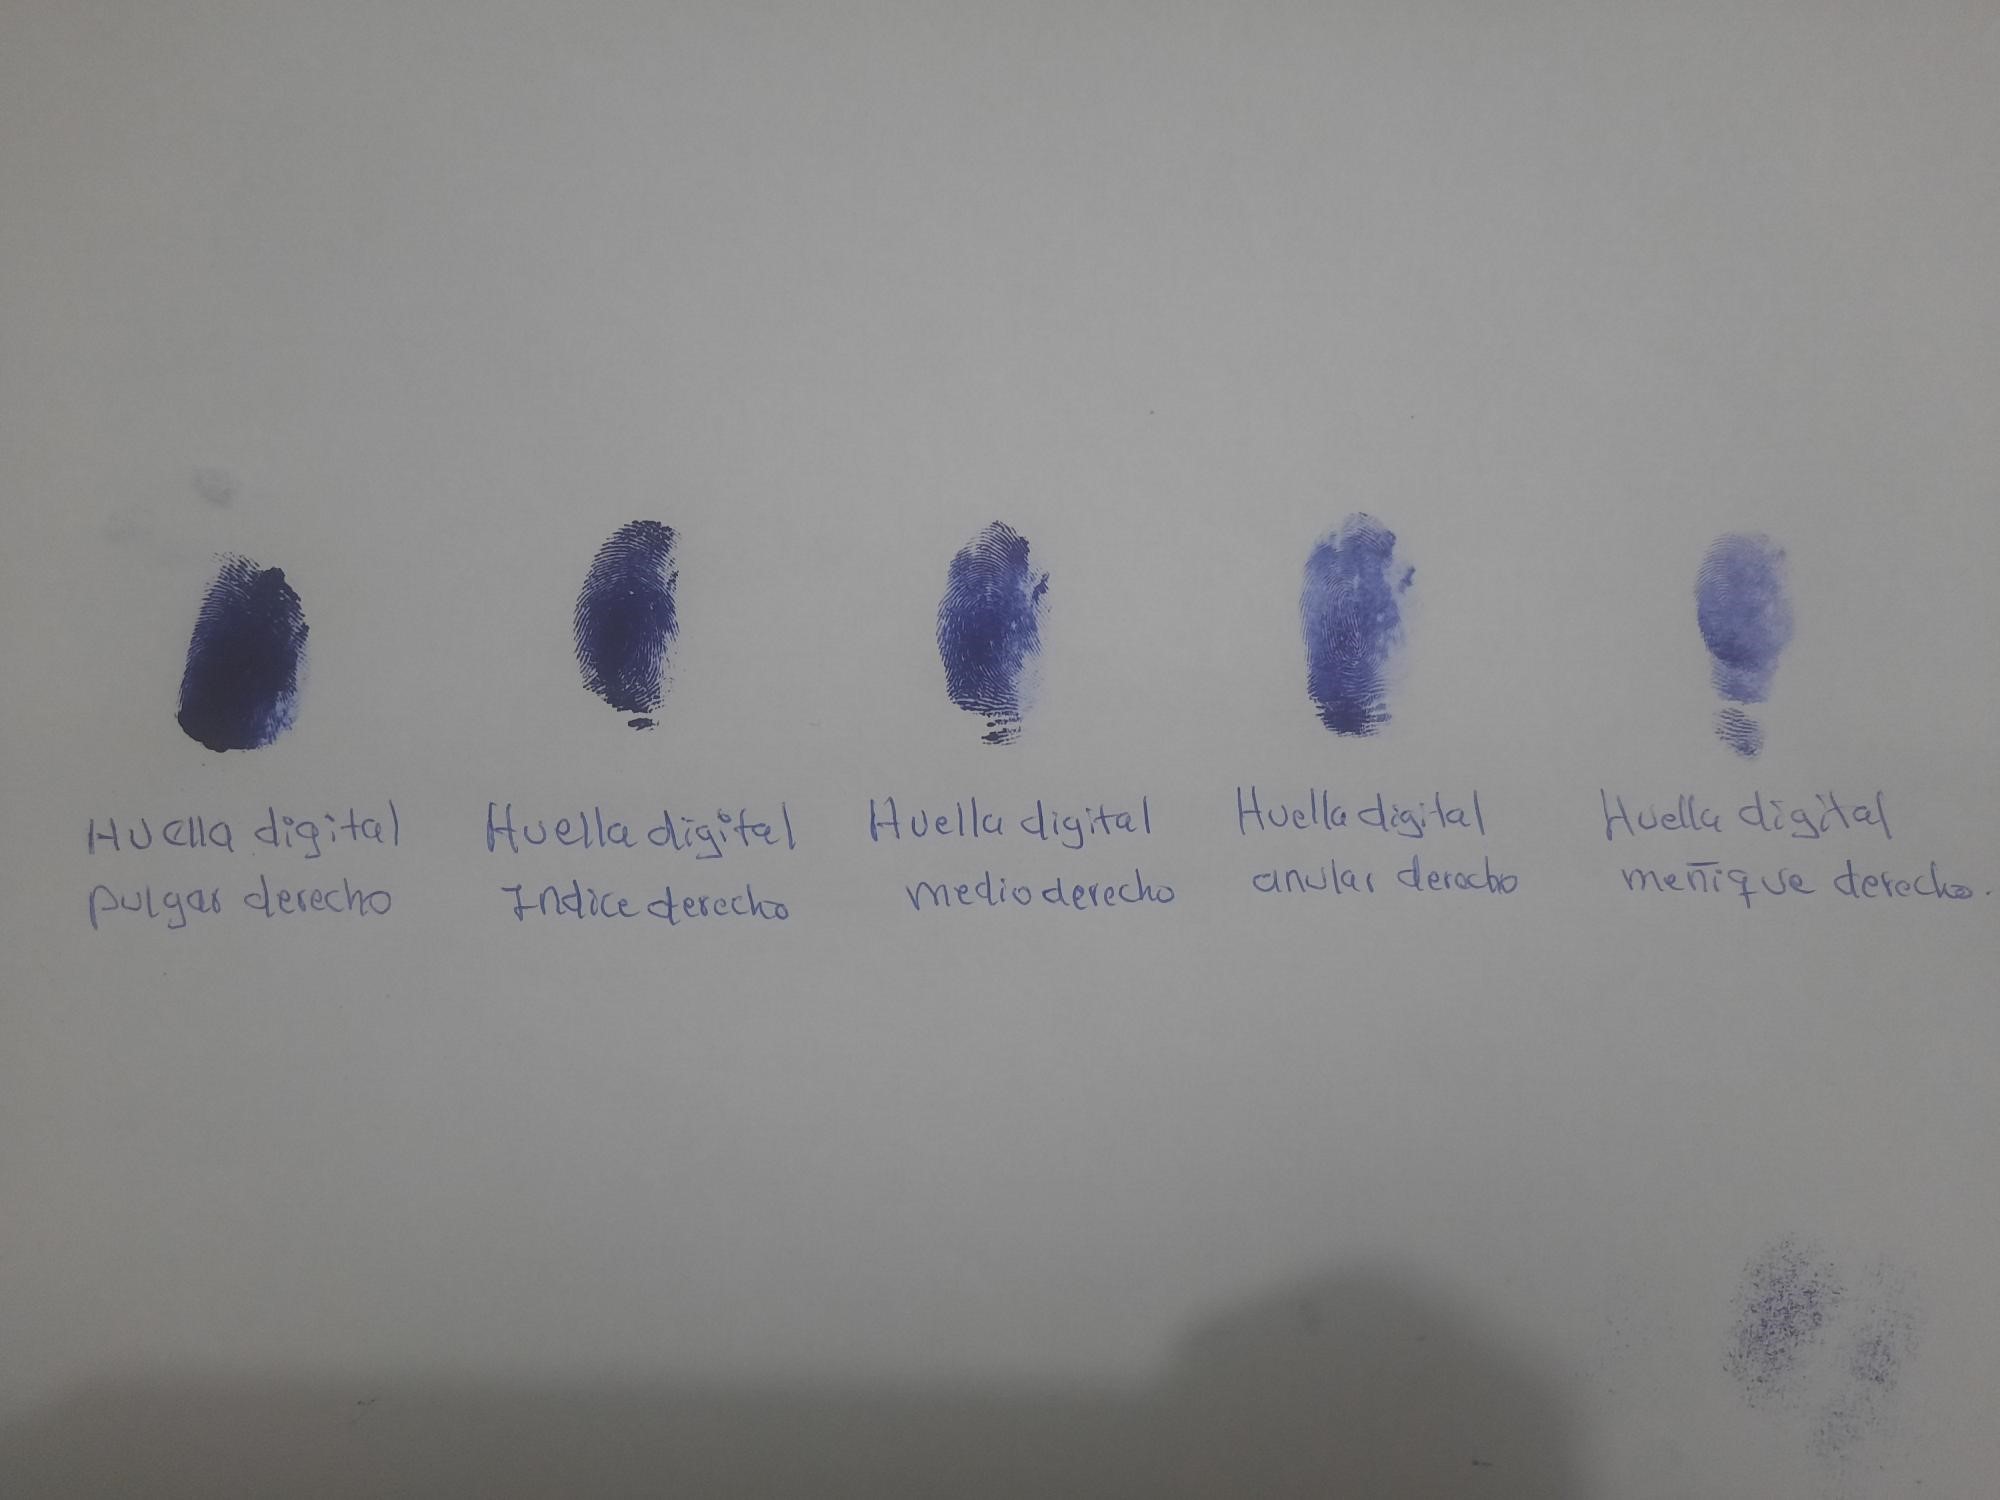 Huella digital
pulgar derecho
Huella digital
Indice derecho
Huella digital
medio derecho
Huella digital
anular derecho
Huella digital
meñique derecho.